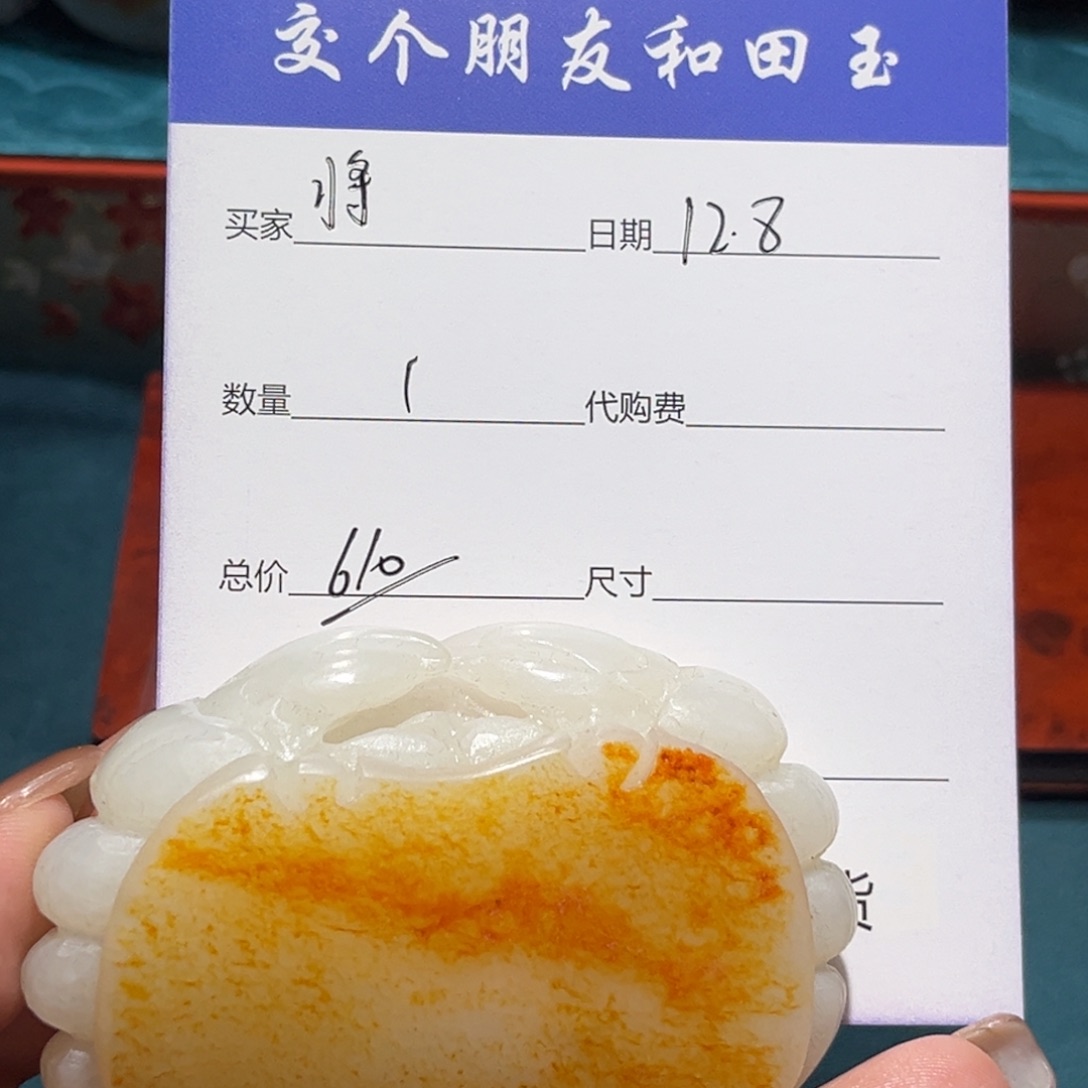 交个朋友和田玉
买家 将 日期 12.8
数量 1 代购费
总价 610 尺寸
货